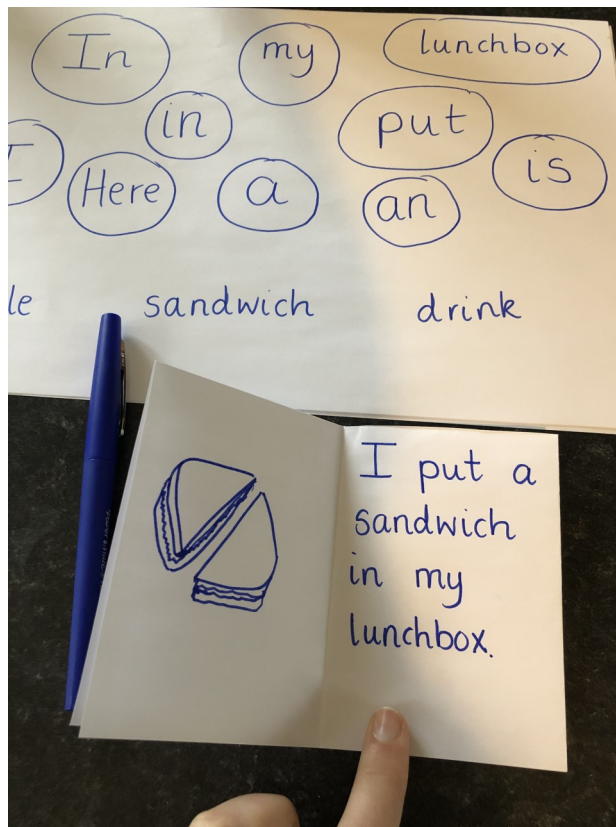 In my lunchbox
in put
I Here a an is
le sandwich drink
I put a
sandwich
in my
lunchbox.